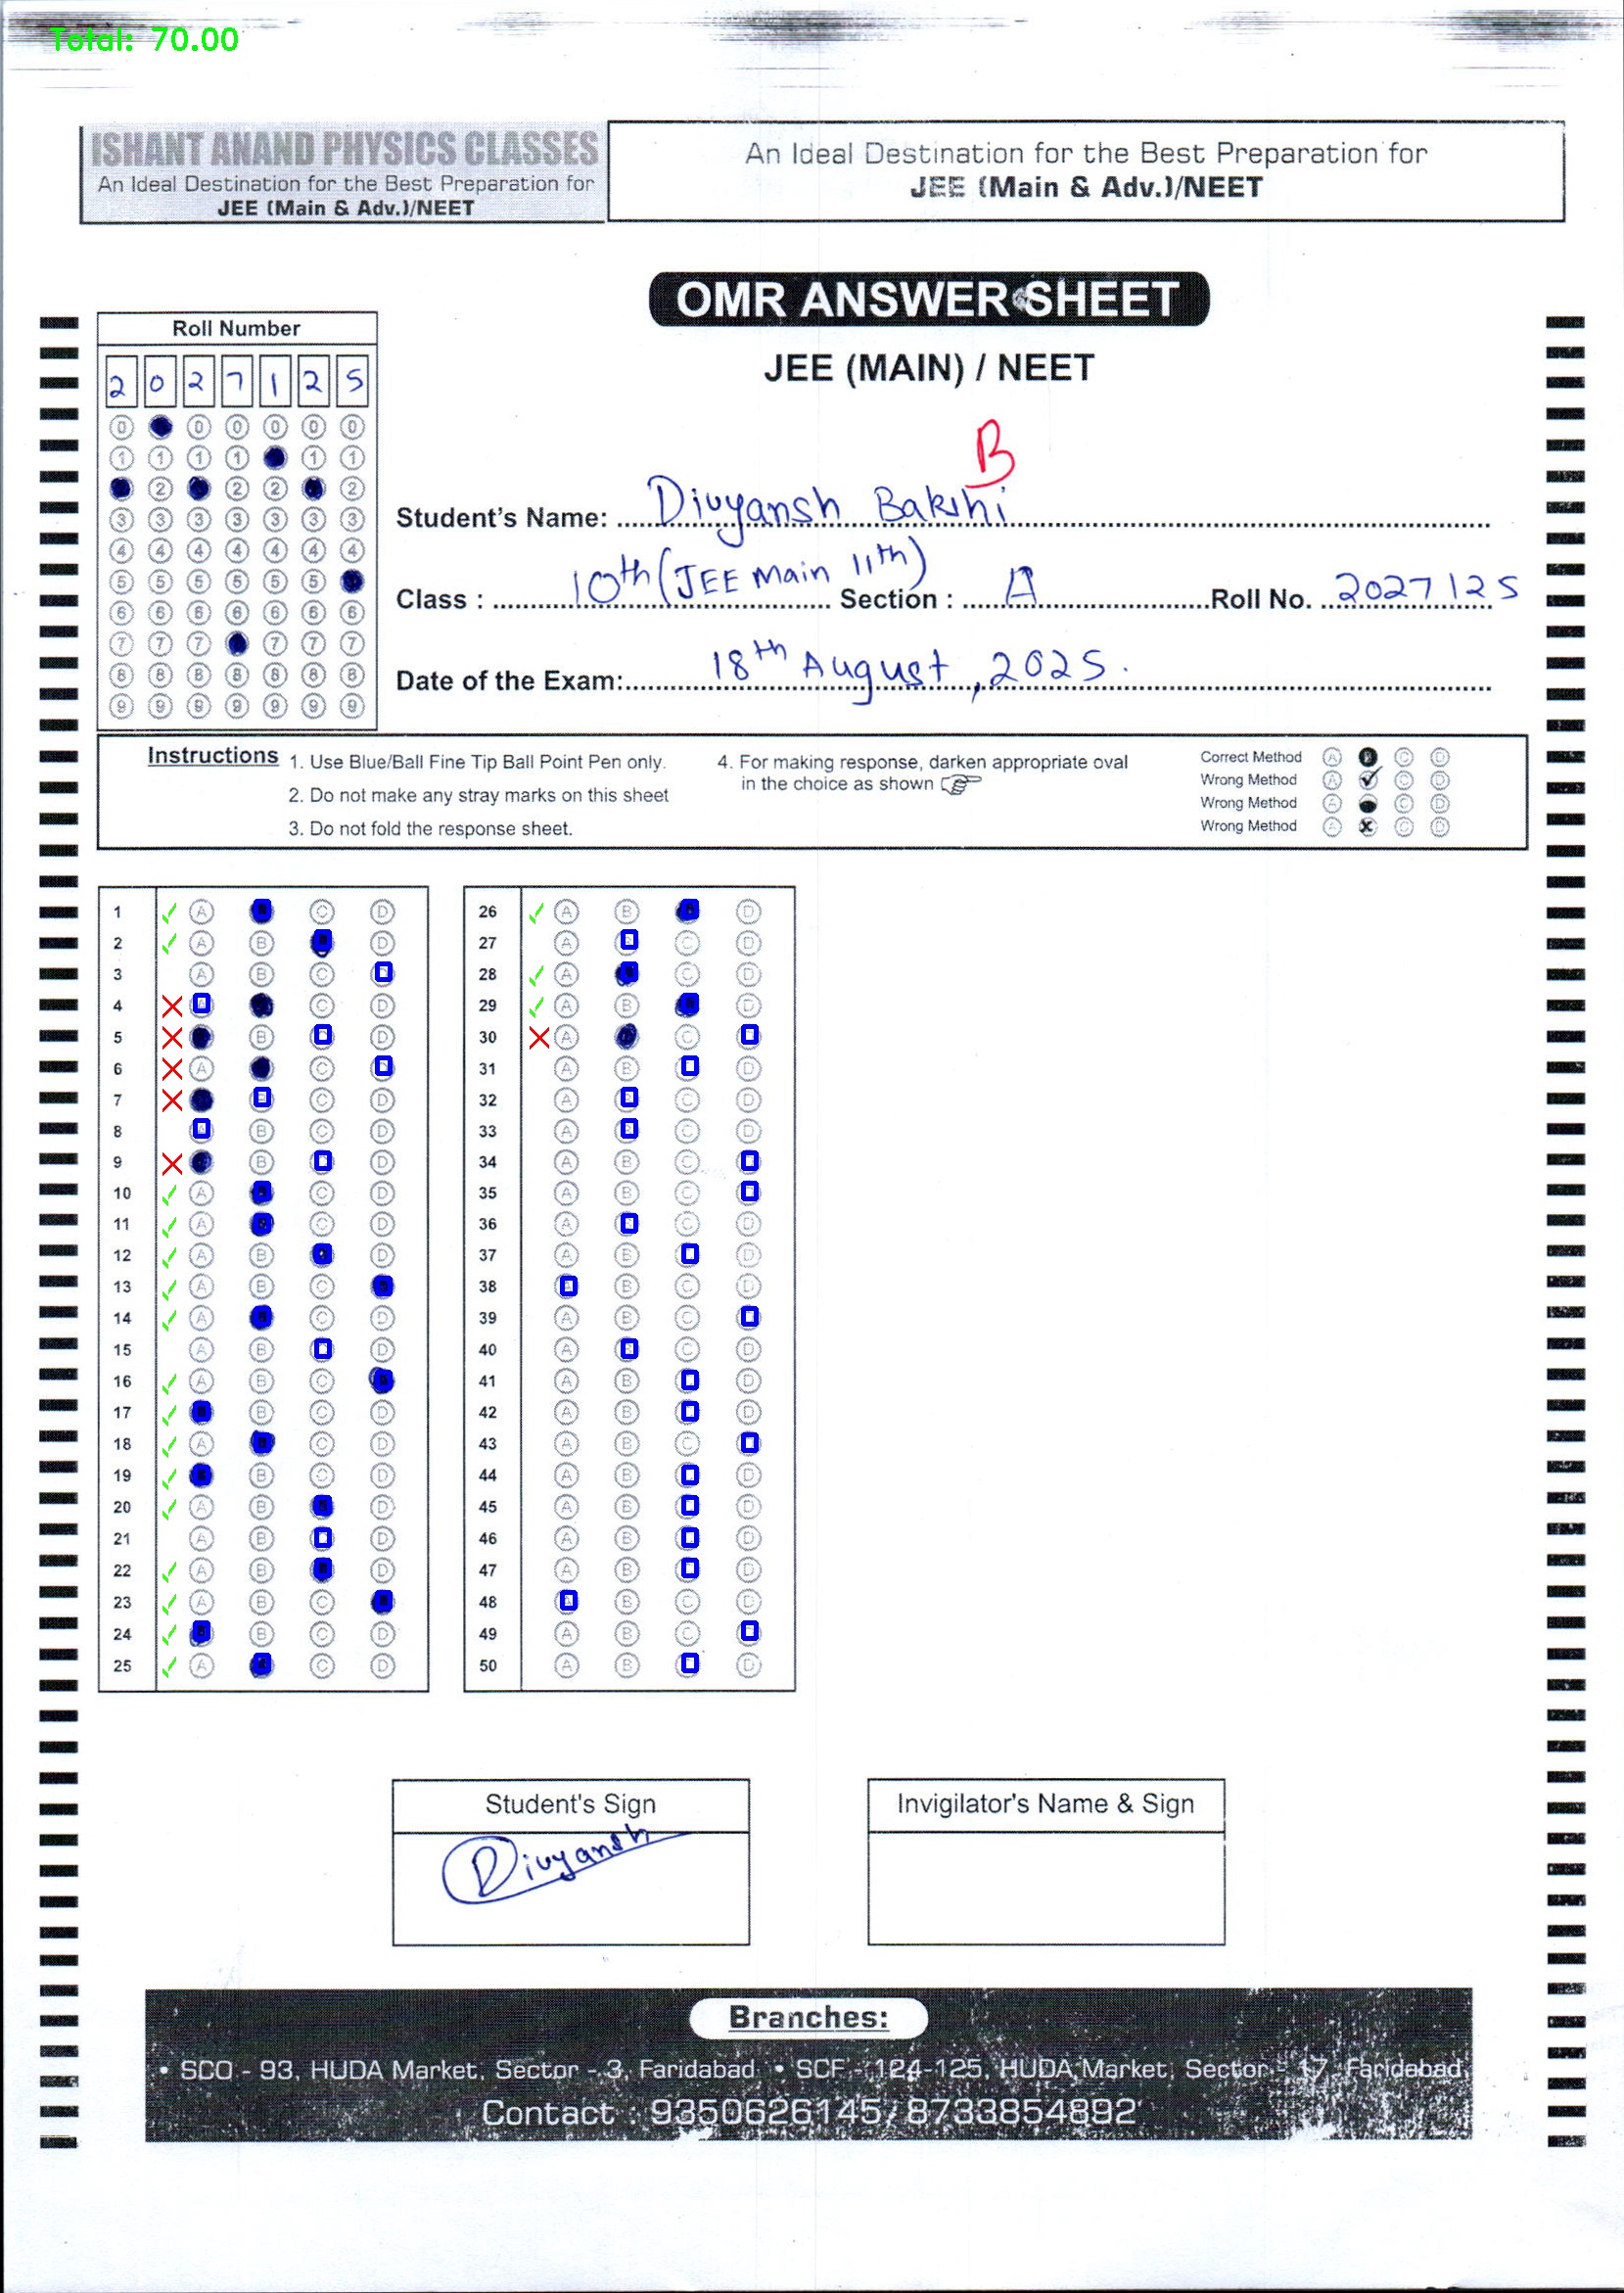 Total: 70.00
ISHANT ANAND PHYSICS CLASSES
An Ideal Destination for the Best Preparation for
JEE (Main & Adv.)/NEET
An Ideal Destination for the Best Preparation for
JEE (Main & Adv.)/NEET
OMR ANSWER SHEET
JEE (MAIN) / NEET
Roll Number
2 0 2 7 1 2 5
0 0 0 0 0 0
1 1 1 1 1 1
2 2 2 2
3 3 3 3 3 3 3
4 4 4 4 4 4 4
5 5 5 5 5 5
6 6 6 6 6 6 6
7 7 7 7 7 7
8 8 8 8 8 8 8
9 9 9 9 9 9 9
B
Student's Name: Divyansh Bakshi
Class : 10th (JEE Main 11th) Section : A Roll No. 2027125
Date of the Exam: 18th August, 2025.
Instructions
1. Use Blue/Ball Fine Tip Ball Point Pen only.
2. Do not make any stray marks on this sheet
3. Do not fold the response sheet.
4. For making response, darken appropriate oval
in the choice as shown
Correct Method A B C D
Wrong Method A C D
Wrong Method A C D
Wrong Method A C D
1 A C D
2 A B D
3 A B C
4 C D
5 B D
6 A C
7 C D
8 B C D
9 B D
10 A C D
11 A C D
12 A B D
13 A B C
14 A C D
15 A B D
16 A B C
17 B C D
18 A C D
19 B C D
20 A B D
21 A B D
22 A B D
23 A B C
24 B C D
25 A C D
26 A B D
27 A C D
28 A C D
29 A B D
30 A C
31 A B D
32 A C D
33 A C D
34 A B C
35 A B C
36 A C D
37 A B D
38 B C D
39 A B C
40 A C D
41 A B D
42 A B D
43 A B C
44 A B D
45 A B D
46 A B D
47 A B D
48 B C D
49 A B C
50 A B D
Student's Sign
Divyansh
Invigilator's Name & Sign
Branches:
• SCO - 93, HUDA Market, Sector - 3, Faridabad • SCF - 124-125, HUDA Market, Sector - 17, Faridabad
Contact : 9350626145, 8733854892